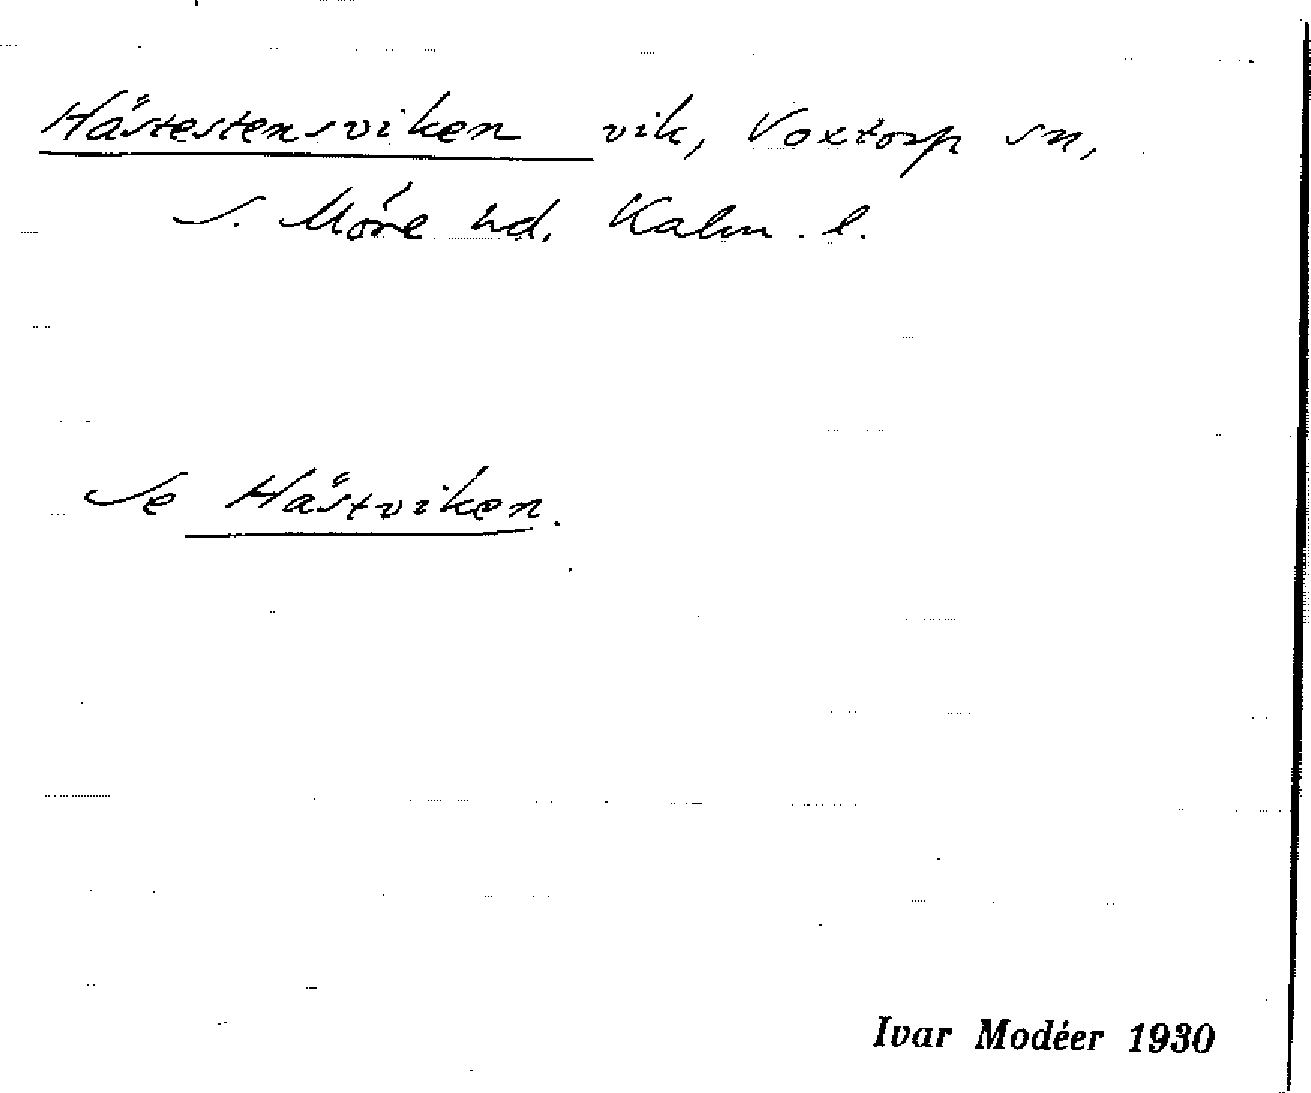 Hästestensviken vik, Voxtorp sn,
S. Möre hd. Kalm. l.
Se Hästviken.
Ivar Modéer 1930